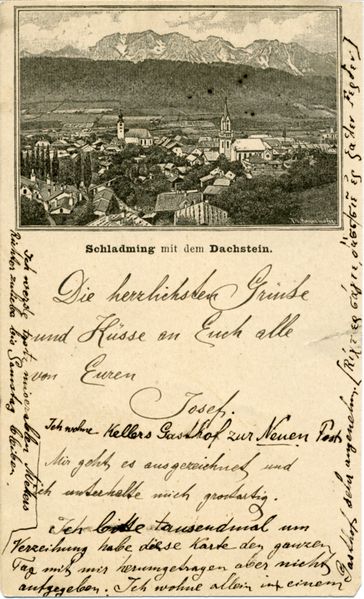 Schladming mit dem Dachstein.
Die herzlichsten Grüsse
und Küsse an Euch alle
von Euren
Josef.
Ich wohne Kellers Gasthof zur Neuen Post
Mir geht es ausgezeichnet und
ich unterhalte mich grossartig.
Ich bitte tausendmal um
Verzeihung habe diese Karte den ganzen
Tag mit mir herumgetragen aber nicht
aufgegeben. Ich wohne allein in einem
Gasthof sehr angenehm.
Ich werde dort
bis Samstag
bleiben.